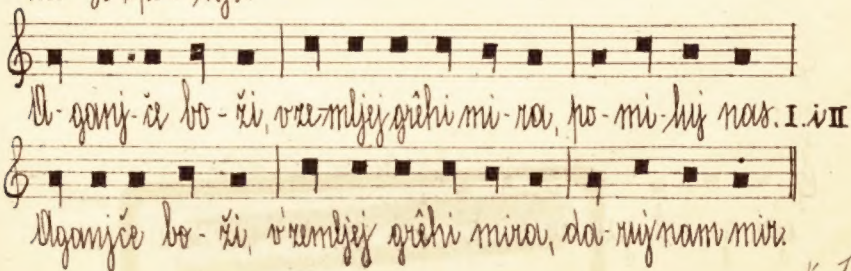 A-ganj-če bo-ži, vze-mljej grêhi mi-ra, po-mi-luj nas. I. i II
Aganjče bo-ži, vzemljej grêhi mira, da-ruj nam mir.